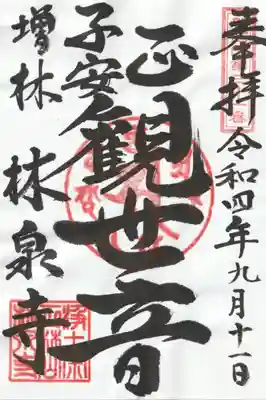 奉拝 令和四年九月十一日
正観世音
子安
増林 林泉寺